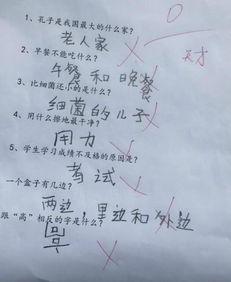 0
天才
1、孔子是我国最大的什么家?
老人家
2、早餐不能吃什么?
午餐和晚餐
3、比细菌还小的是什么?
细菌的儿子
4、用什么擦地最干净?
用力
5、学生学习成绩不及格的原因是?
考试
一个盒子有几边?
两边,里边和外边
跟“高”相反的字是什么?